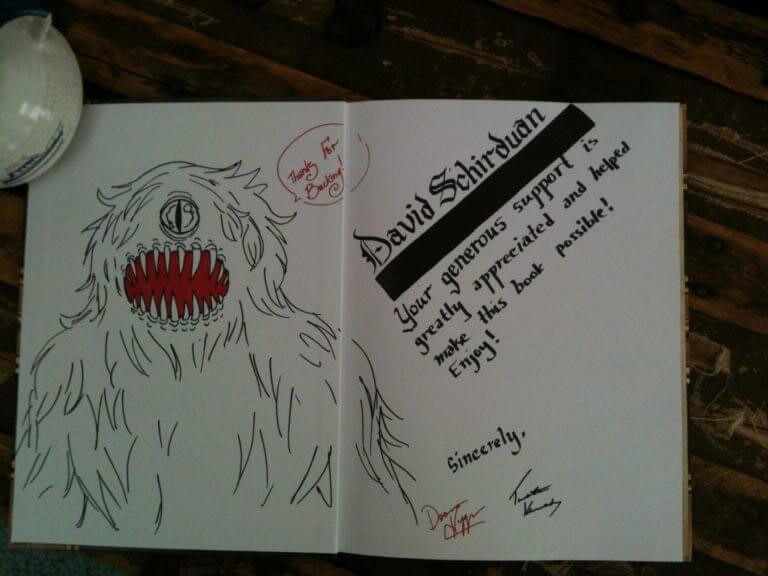 Thanks For
Backing!
David Schirduan
Your generous support is
greatly appreciated and helped
make this book possible!
Enjoy!
Sincerely,